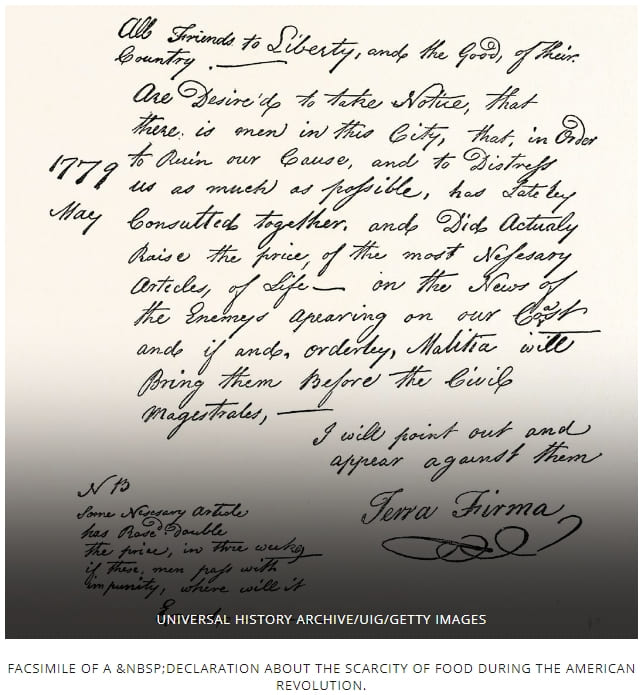 All Friends to Liberty, and the Good, of their
Country.
Are Desire'd to take Notice, that
there is men in this City, that, in Order
1779
to Ruin our Cause, and to Distress
us as much as possible, has Lateley
May
Consulted together, and Did Actualy
Raise the price, of the most Nesesary
Articles, of Life — on the News of
the Enemeys apearing on our Coast
and if and, orderley, Malitia will
Bring them Before the Civil
Magestrates, —
I will point out and
appear against them
NB
Some Nesesary Article
has Rose double
the price, in three weeks
if these, men pass with
impunity, where will it
Terra Firma
UNIVERSAL HISTORY ARCHIVE/UIG/GETTY IMAGES
FACSIMILE OF A &NBSP;DECLARATION ABOUT THE SCARCITY OF FOOD DURING THE AMERICAN
REVOLUTION.